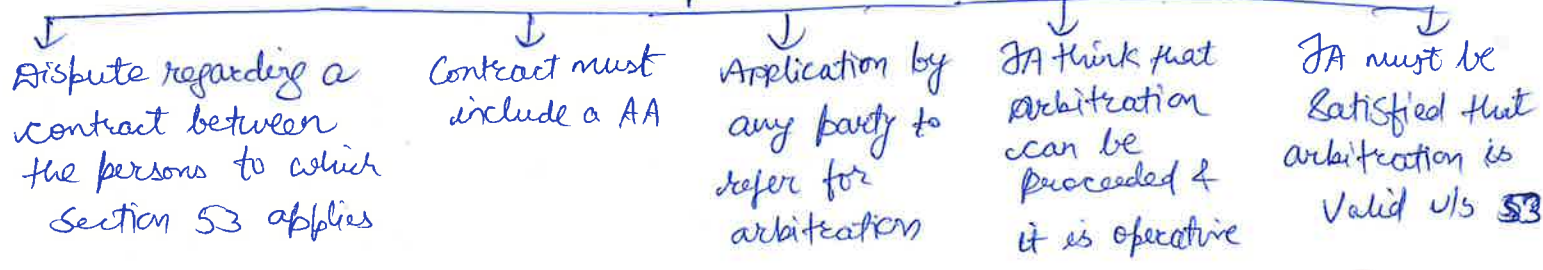 Dispute regarding a
contract between
the persons to which
Section 53 applies
Contract must
include a AA
Application by
any party to
refer for
arbitration
JA think that
arbitration
can be
proceeded &
it is operative
JA must be
Satisfied that
arbitration is
Valid u/s 53